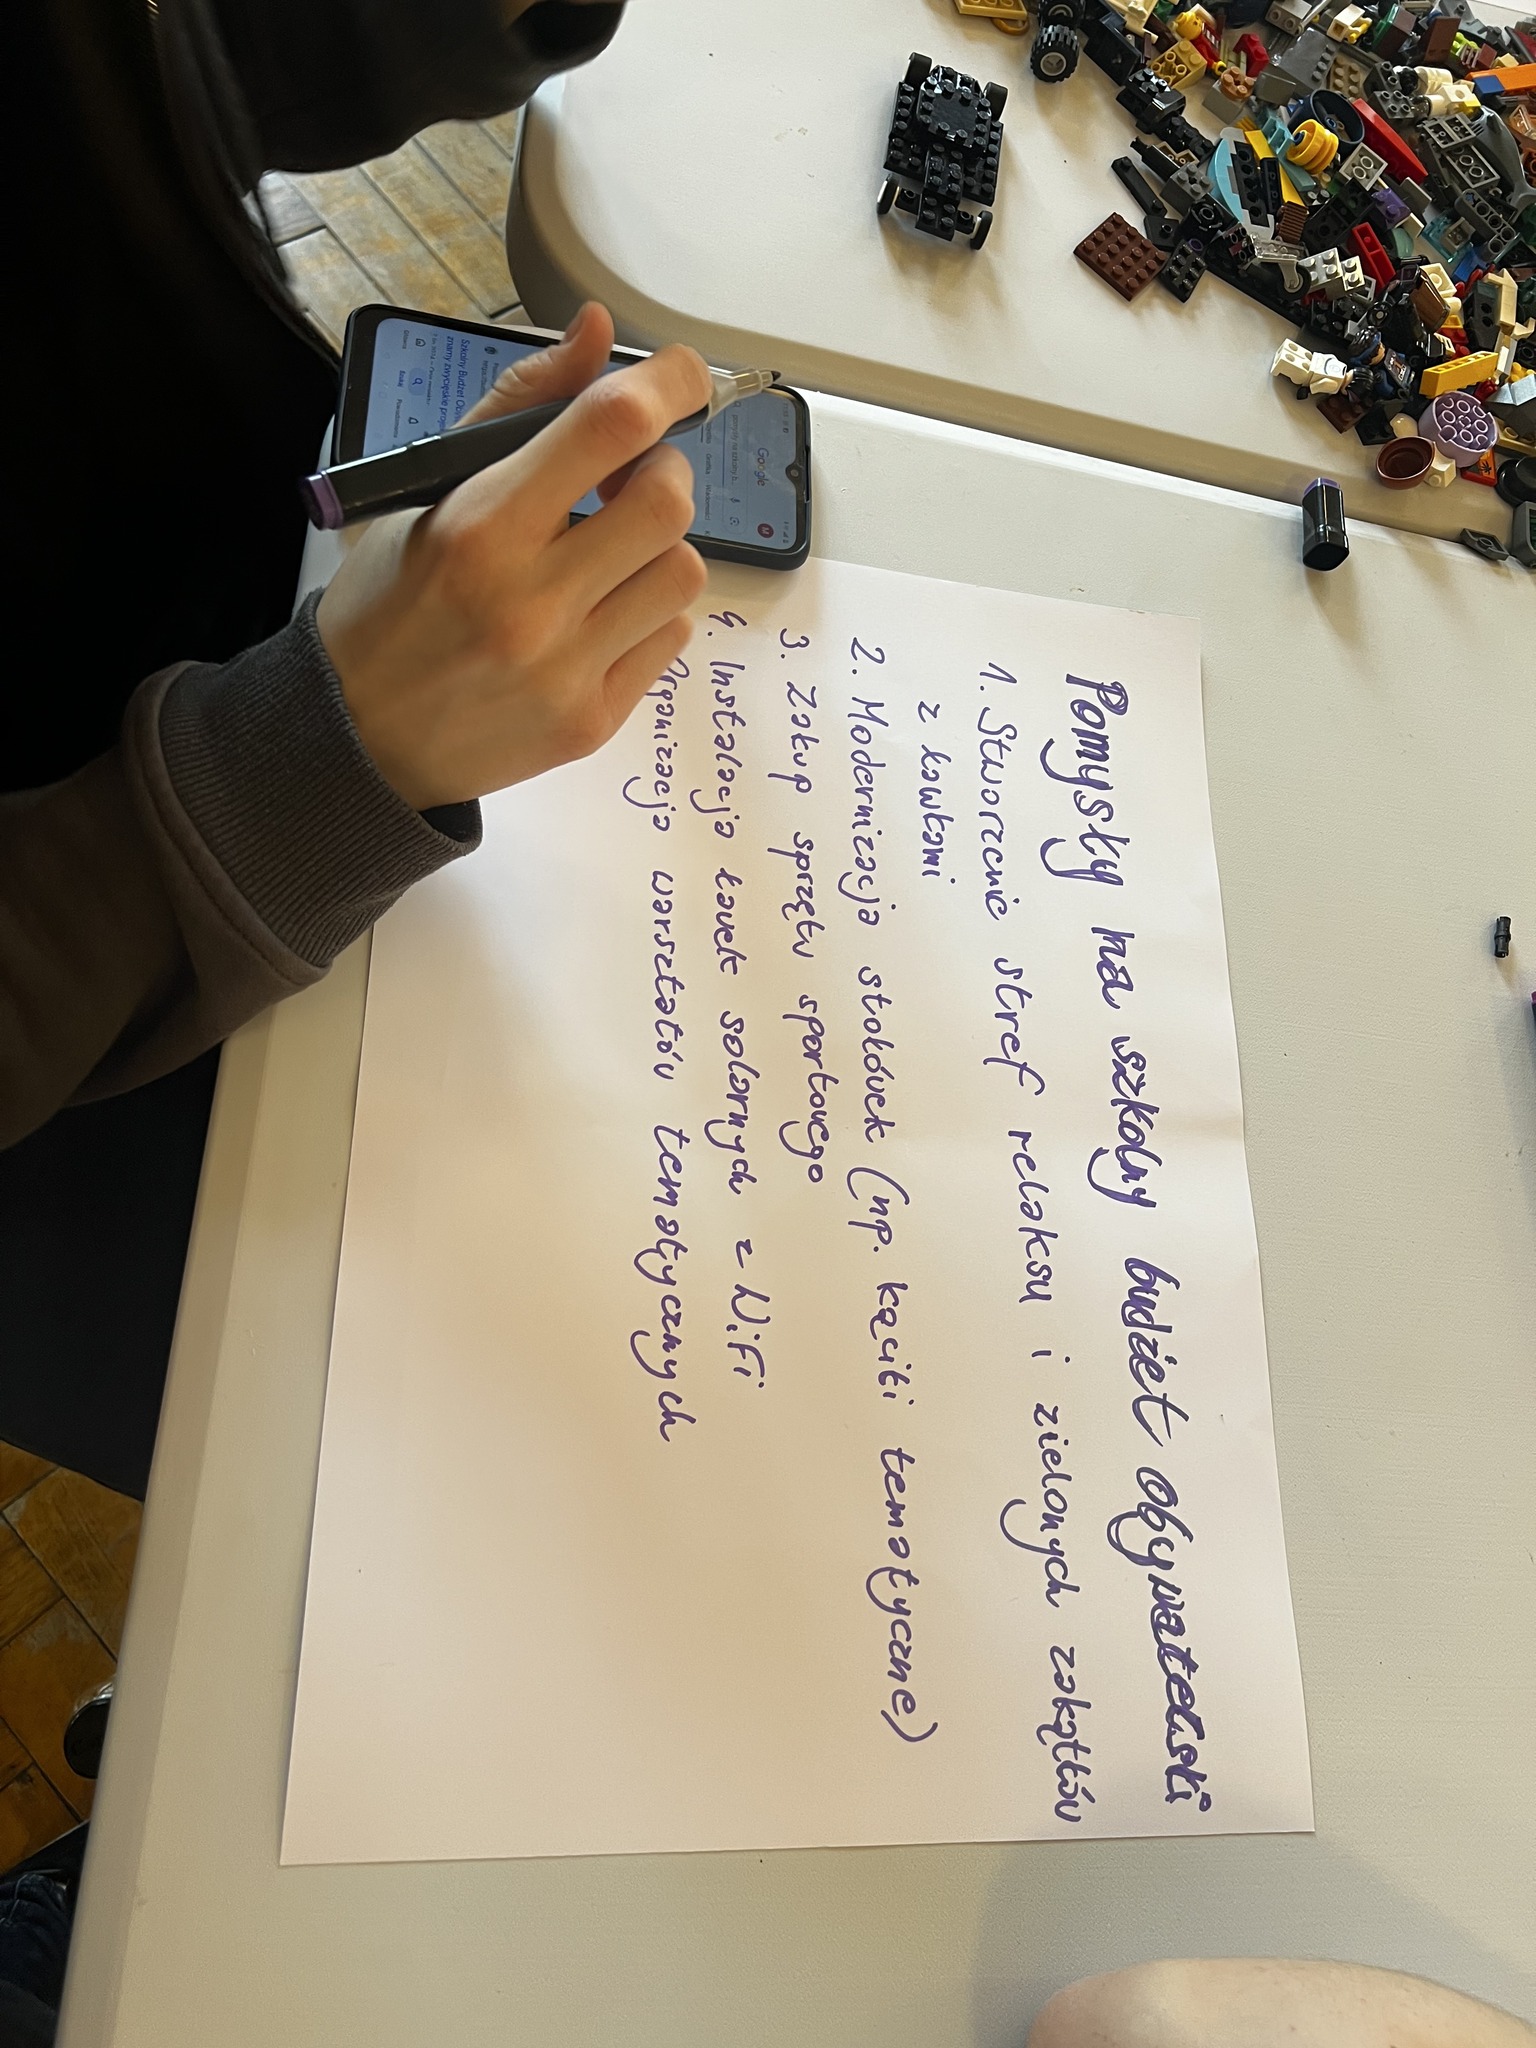 Pomysły na szkolny budżet obywatelski
1. Stworzenie stref relaksu i zielonych zakątków
z ławkami
2. Modernizacja stołówek (np. kąciki tematyczne)
3. Zakup sprzętu sportowego
4. Instalacja ławek solarnych z WiFi
Organizacja warsztatów tematycznych
Google
Grafika Wiadomości
Szkolny Budżet
znamy zwycięskie